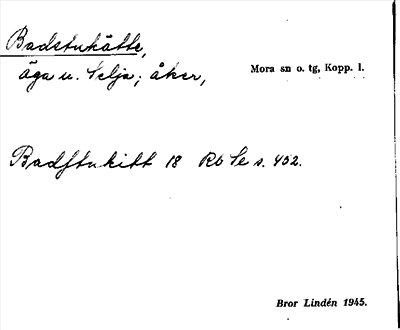 Badstukätte,
äga u. Selja; åker,
Mora sn o. tg, Kopp. l.
Badstukitt 18 Rb Se s. 452.
Bror Lindén 1945.